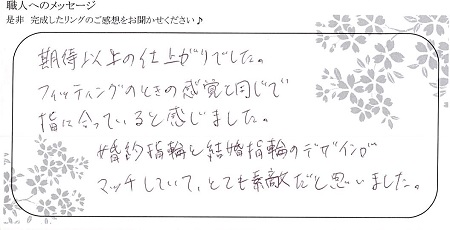 職人へのメッセージ
是非 完成したリングのご感想をお聞かせください♪
期待以上の仕上がりでした。
フィッティングのときの感覚と同じで
指に合っていると感じました。
婚約指輪と結婚指輪のデザインが
マッチしていて、とても素敵だと思いました。